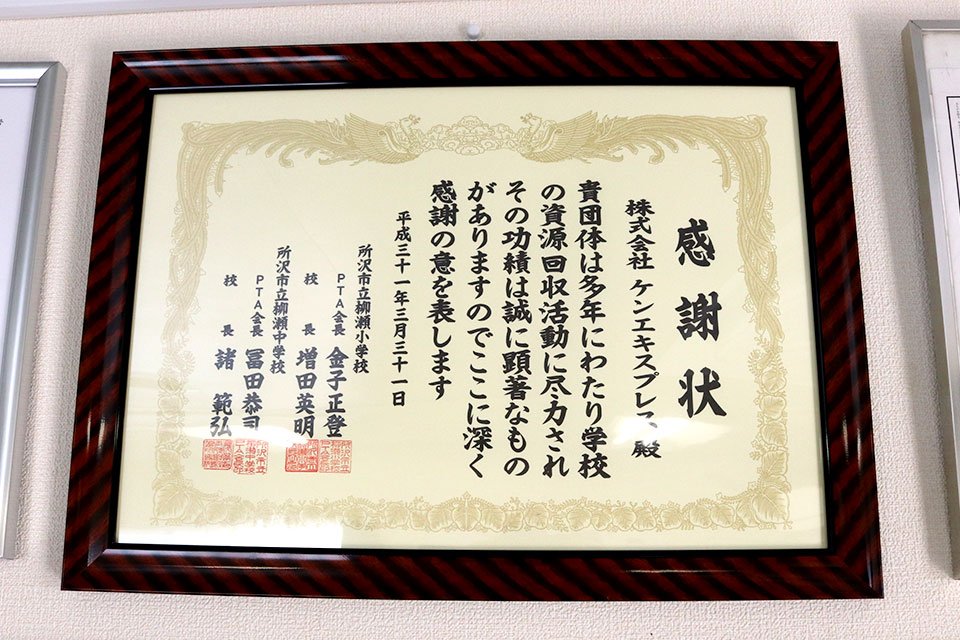 感謝状
株式会社 ケンエキスプレス 殿
貴団体は多年にわたり学校
の資源回収活動に尽力され
その功績は誠に顕著なもの
がありますのでここに深く
感謝の意を表します
平成三十一年三月三十一日
所沢市立柳瀬小学校
PTA会長 金子正登
校長 増田英明
所沢市立柳瀬中学校
PTA会長 冨田恭司
校長 諸 範弘